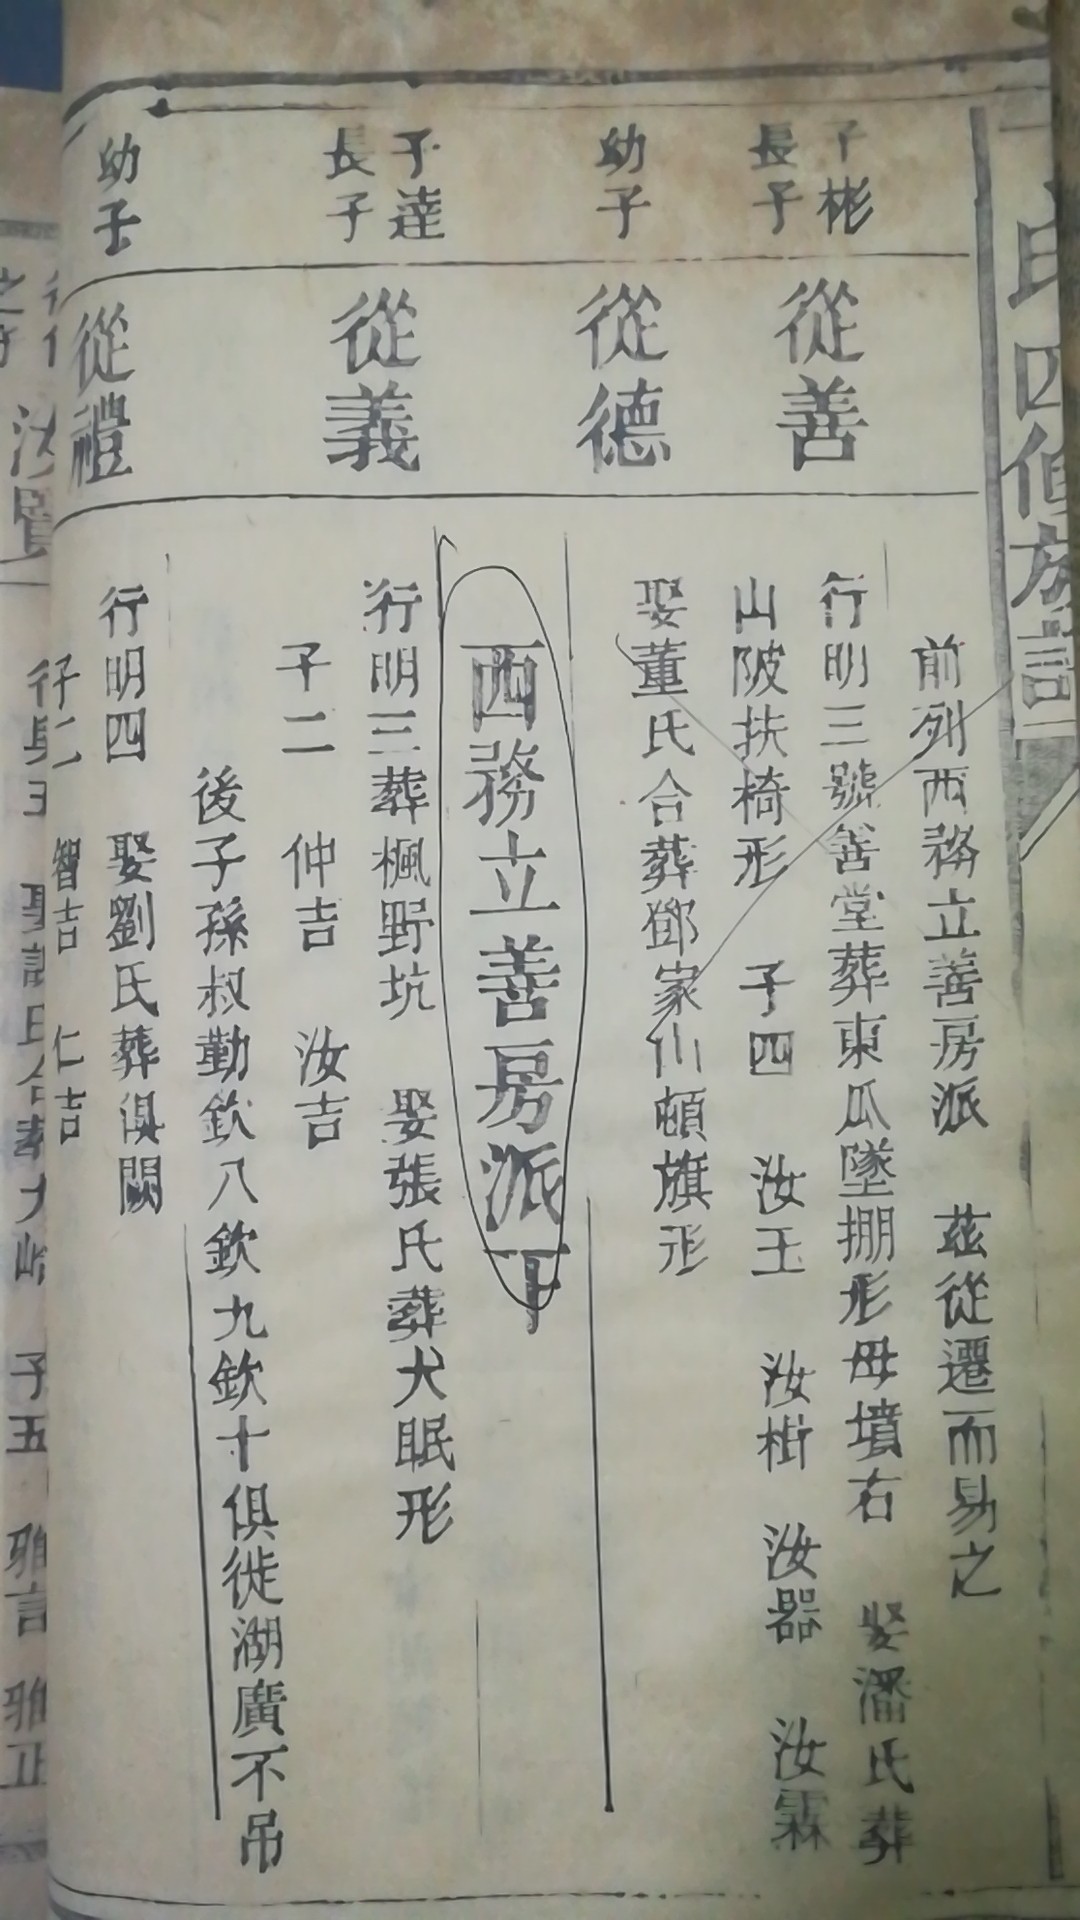 氏四修族譜
子彬
長子
從善
前列西務立善房派　茲從遷而易之
行明三號善堂葬東瓜墜掤形母墳右　娶潘氏葬
山陂扶椅形　子四　汝玉　汝樹　汝器　汝霖
幼子
從德
娶董氏合葬鄧家仙頓旗形
西務立善房派下
子達
長子
從義
行明三葬楓野坑　娶張氏葬犬眠形
子二　仲吉　汝吉
後子孫叔勤欽八欽九欽十俱徙湖廣不吊
幼子
從禮
行明四　娶劉氏葬俱闕
子二　智吉　仁吉
汝賢
子五　雅言　雅正